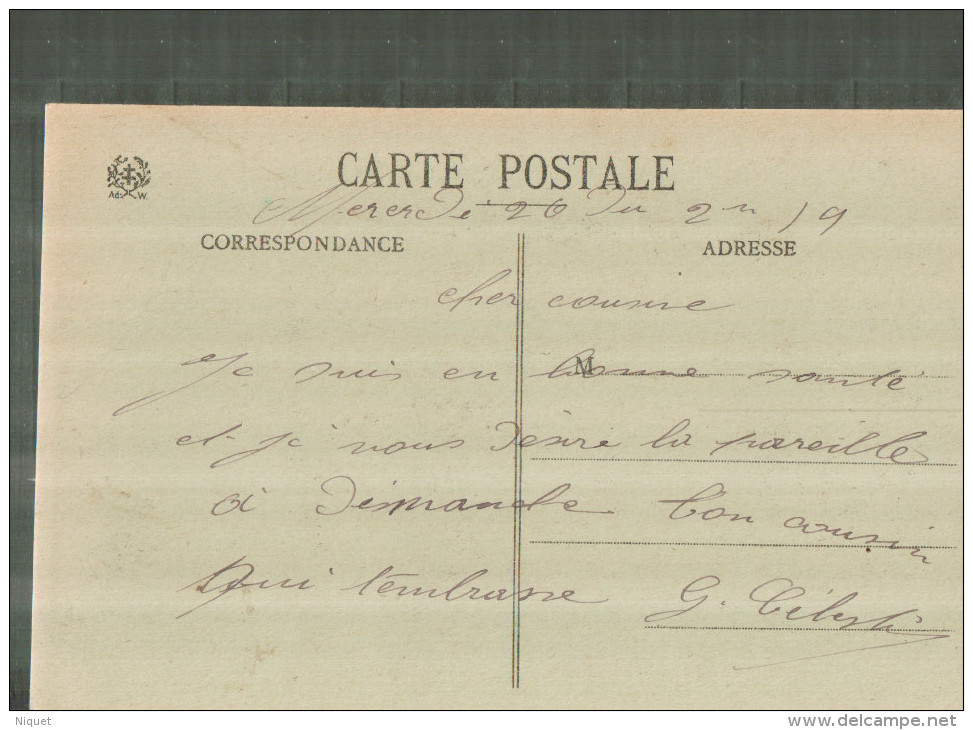 CARTE POSTALE
Ad. W.
Mercredi 26 du 2m 19
CORRESPONDANCE
ADRESSE
cher cousine
M
Je suis en bonne santé
et je vous désire la pareille
a Dimanche ton cousin
qui t'embrasse G. Célest
Niquet
delcampe.net